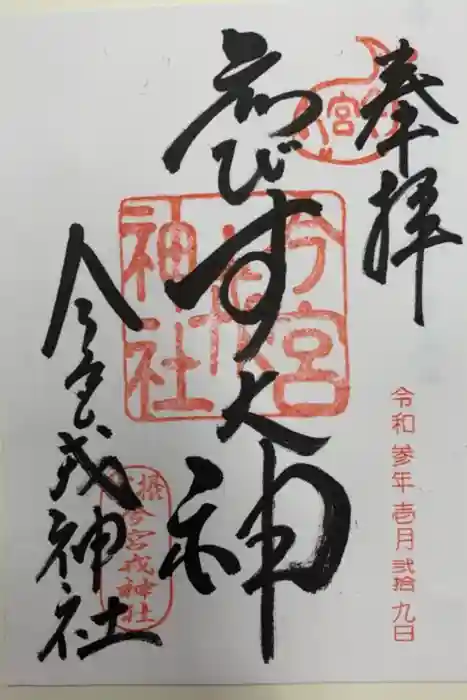 奉拝
令和参年壱月弐拾九日
ゑびす大神
今宮戎神社
今宮戎神社
摂津今宮戎神社